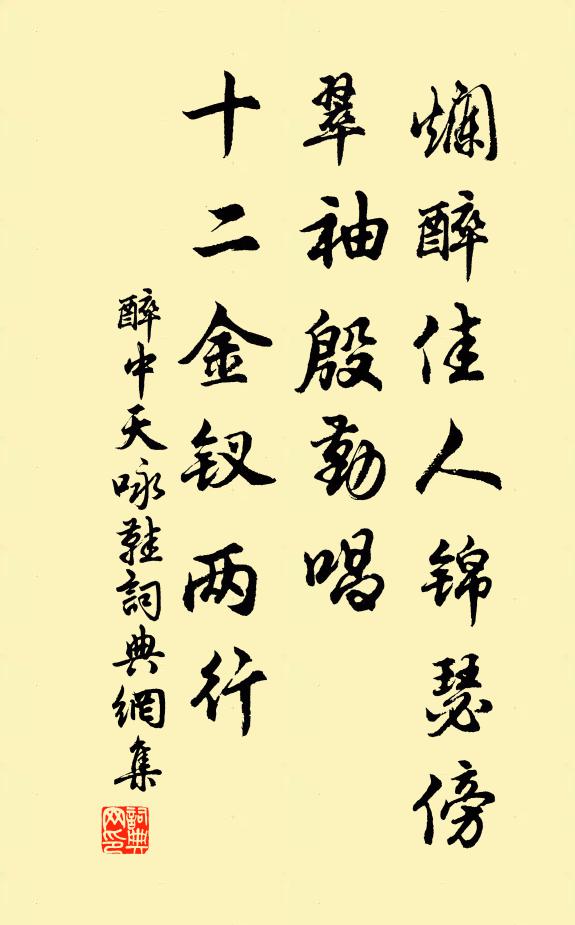 爛醉佳人锦瑟傍
翠袖殷勤唱
十二金钗两行
醉中天咏鞋詞典網集
詞典
网印